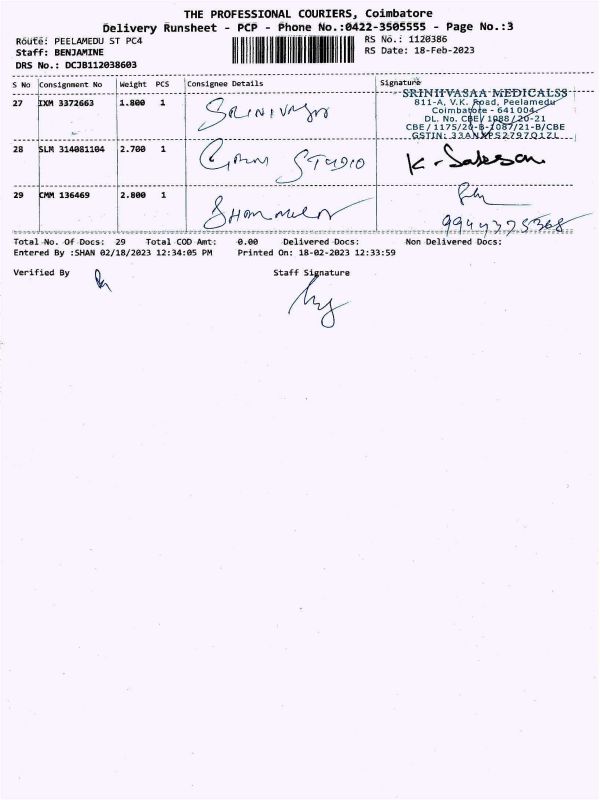 THE PROFESSIONAL COURIERS, Coimbatore
Delivery Runsheet - PCP - Phone No.:0422-3505555 - Page No.:3
Route: PEELAMEDU ST PC4 RS No.: 1120386
Staff: BENJAMINE RS Date: 18-Feb-2023
DRS No.: DCJB112038603
S No Consignment No Weight PCS Consignee Details Signature
27 IXM 3372663 1.800 1 SRINIVASA
SRINIIVASAA MEDICALSS
811-A, V.K. Road, Peelamedu
Coimbatore - 641 004
DL. No. CBE/ 1088 /20-21
CBE/1175/20-B-1087/21-B/CBE
GSTIN: 33ANXPS2797Q1ZL
28 SLM 314081104 2.700 1 STUDIO K.
29 CMM 136469 2.800 1
Total No. Of Docs: 29 Total COD Amt: 0.00 Delivered Docs: Non Delivered Docs:
Entered By :SHAN 02/18/2023 12:34:05 PM Printed On: 18-02-2023 12:33:59
Verified By Staff Signature